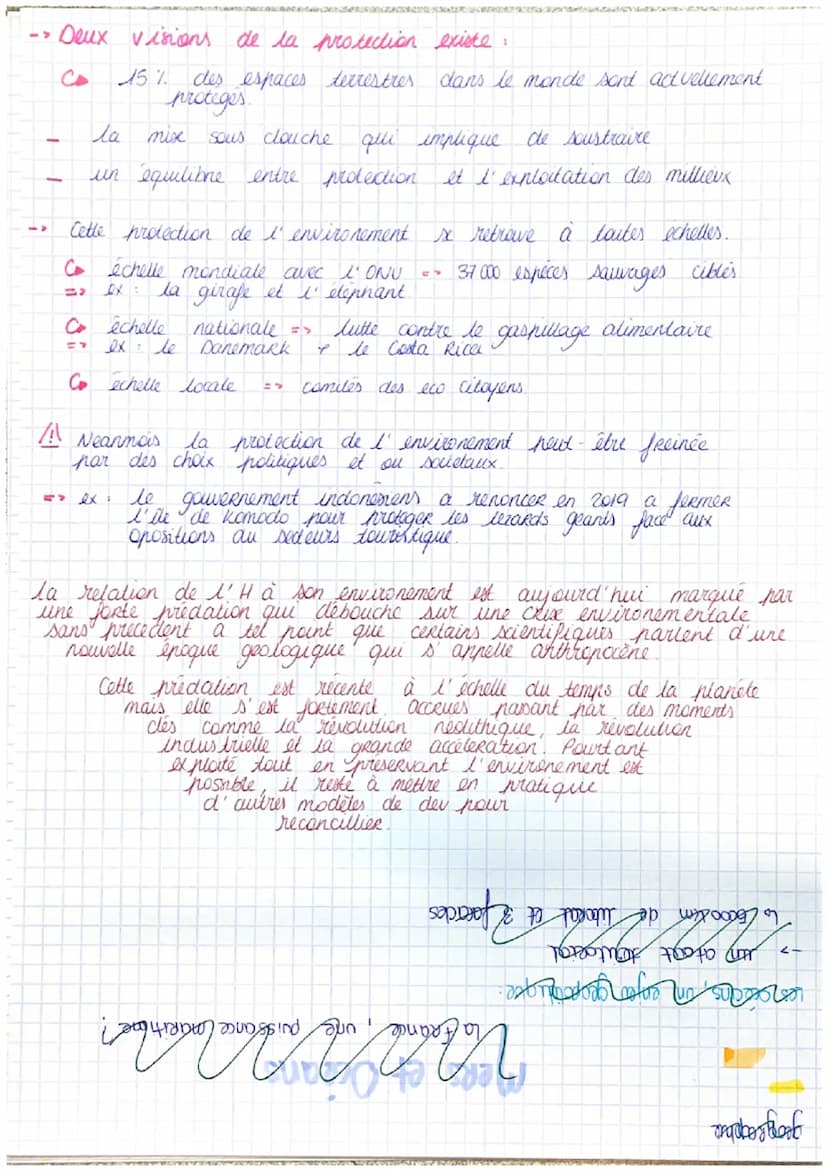 -> Deux visions de la protection existe :
15 % des espaces terrestres dans le monde sont actuellement
protégés.
- la mise sous clouche qui implique de soustraire
- un équilibre entre protection et l'exploitation des millieux
-> Cette protection de l'environement se retrouve à toutes echelles.
échelle mondiale avec l'ONU => 37 000 espèces sauvages ciblés
=> ex : la girafe et l'éléphant
échelle nationale => lutte contre le gaspillage alimentaire
=> ex : le Danemark + le Costa Rica
échelle locale => comités des eco citoyens.
/!\ Neanmois la protection de l'environement peut-être freinée
par des choix politiques et ou sociétaux.
=> ex : le gouvernement indonésiens a renoncer en 2019 a fermer
l'île de Komodo pour protéger les lezards géants face aux
opositions au secteurs touristique.
la relation de l'H à son environement est aujourd'hui marqué par
une forte prédation qui débouche sur une crise environementale
sans précédent à tel point que certains scientifiques parlent d'une
nouvelle époque géologique qui s'appelle anthropocène.
Cette prédation est récente à l'échelle du temps de la planéte
mais elle s'est fortement accrues passant par des moments
clés comme la révolution néolithique, la révolution
industrielle et la grande accéleration. Pourtant
exploité tout en préservant l'environement est
possible, il reste à mettre en pratique
d'autres modèles de dev pour
reconcillier.
geographie
Mers et Océans
la France, une puissance maritime ?
Les océans, un enjeu geopolitique :
-> un atout territorial
de littoral et 3 facades